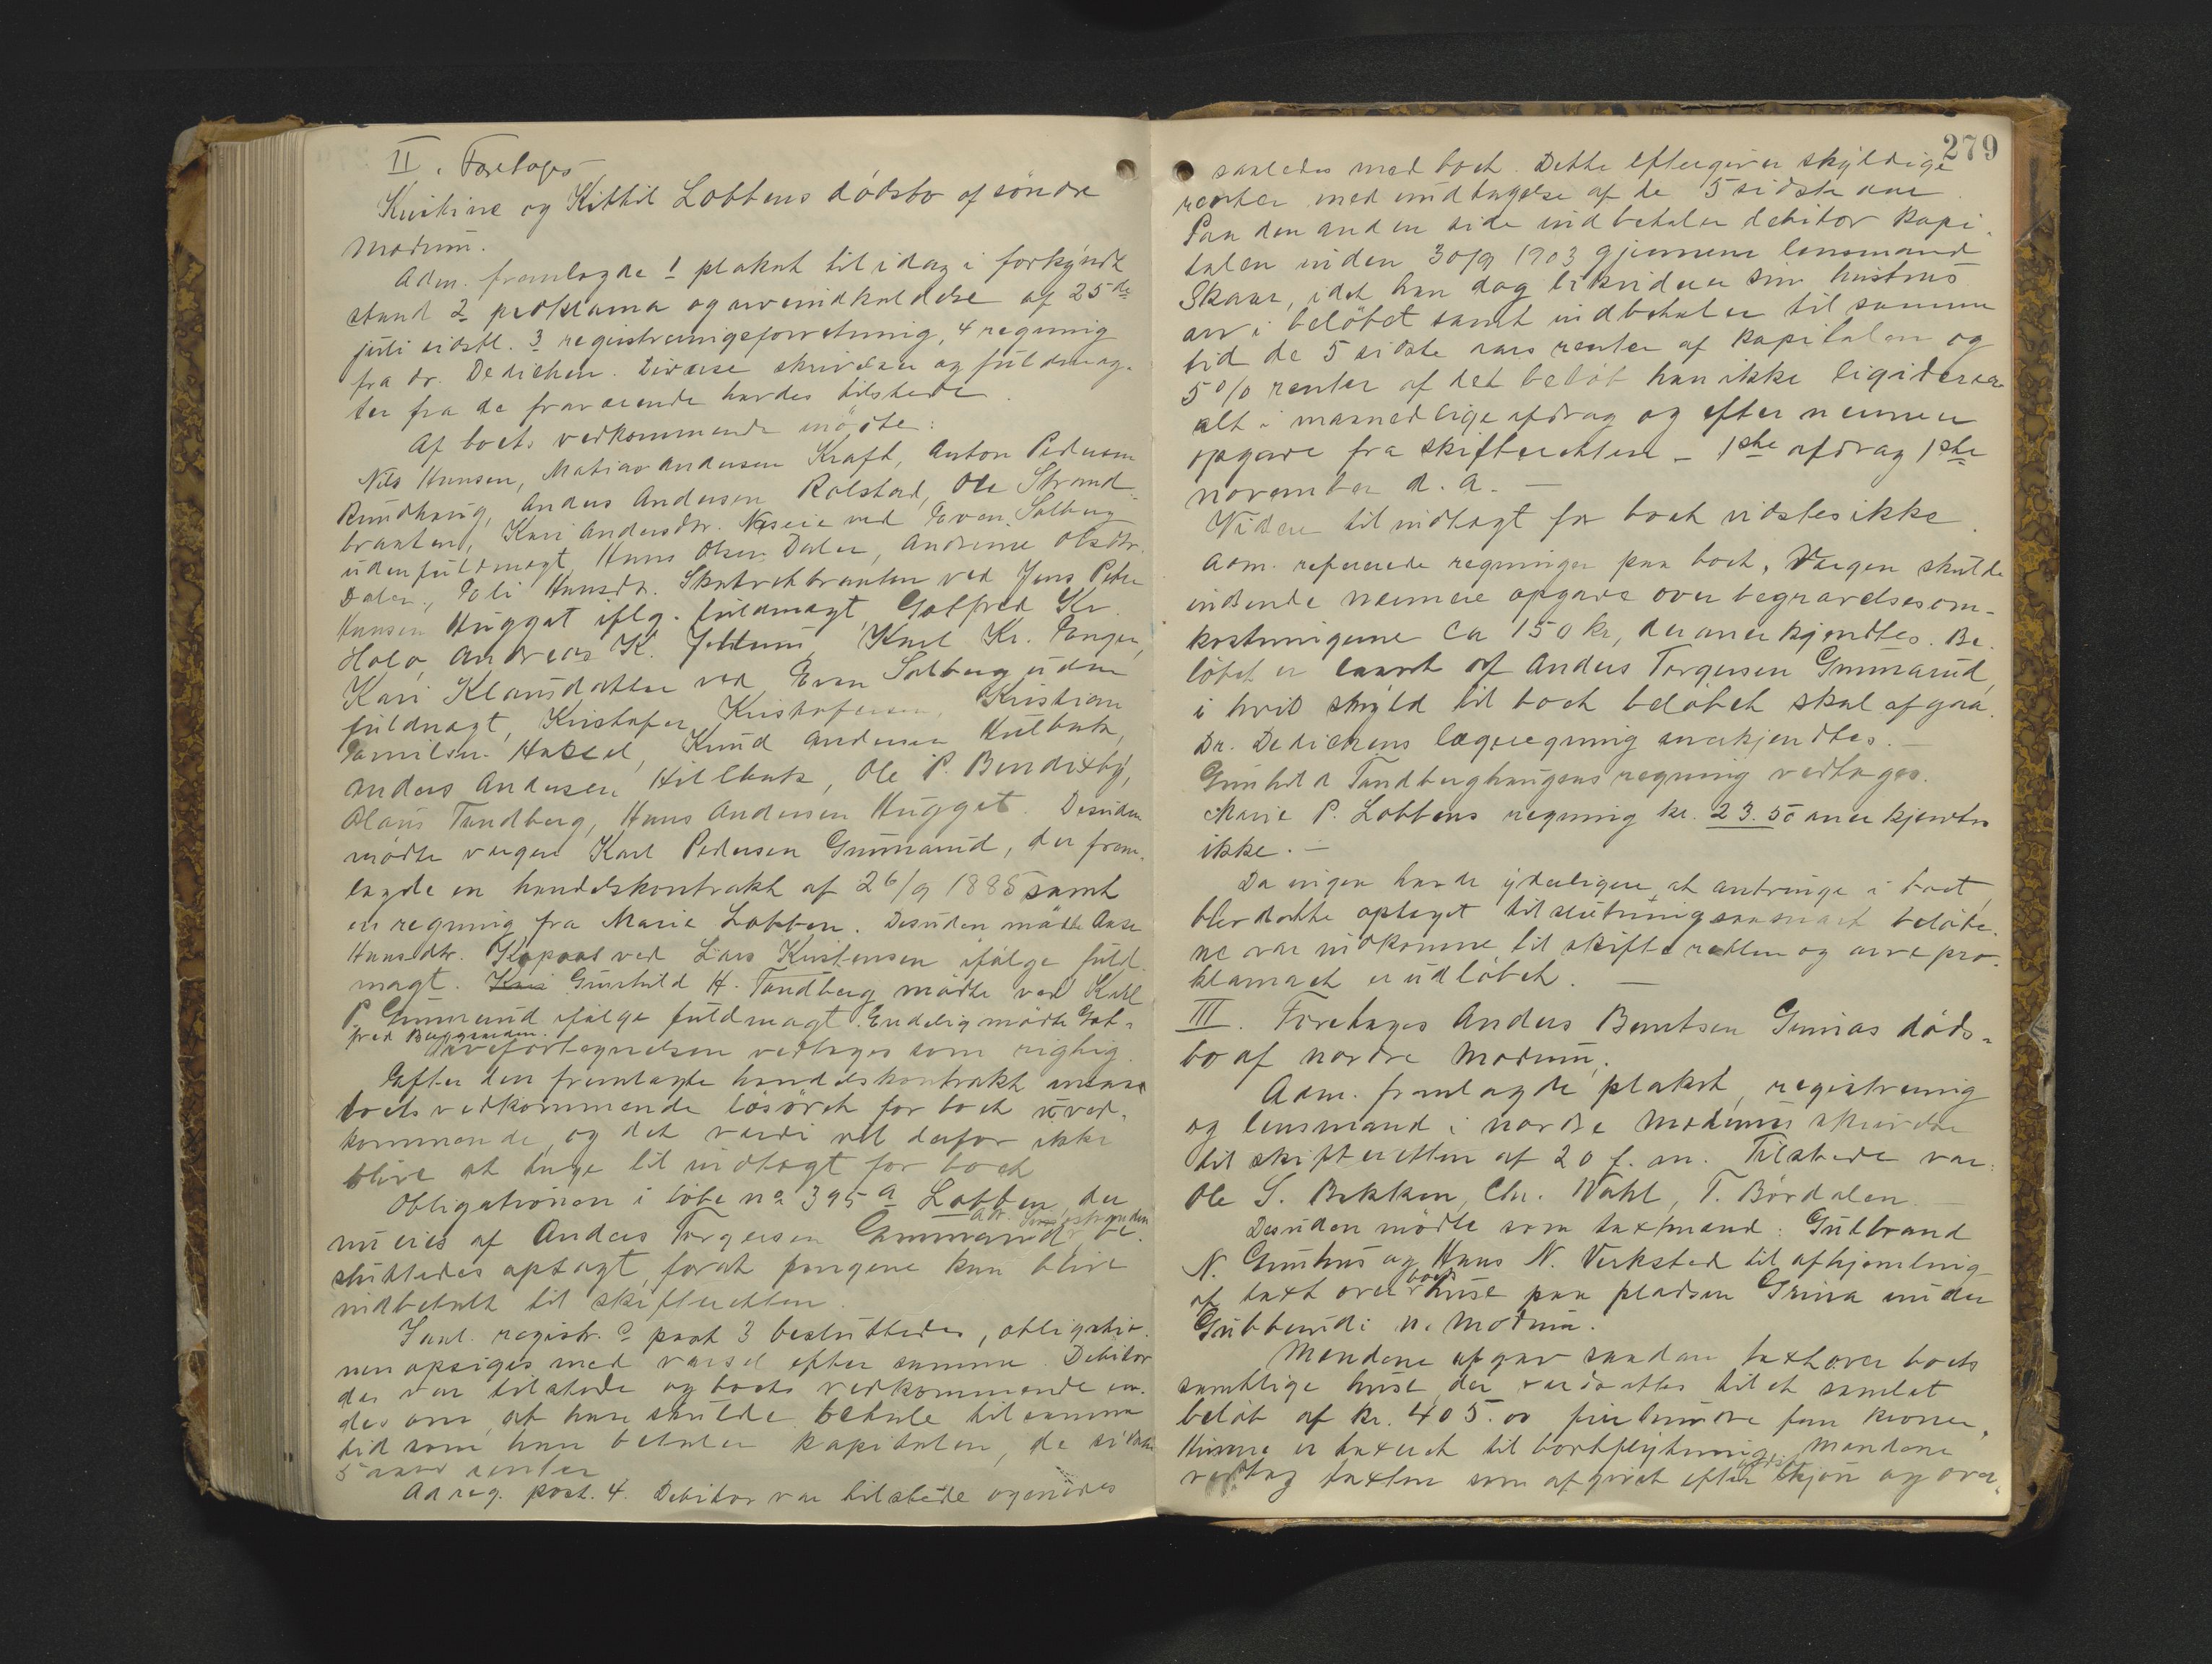 II. Foretoges
Kristine og Kittil Lobbens dödsbo af söndre
Modum.
Adm. fremlagde 1 plakat til idag i forkyndt
stand 2 proklama og arveindkaldelse af 25de
juli sidstl. 3 registreringsforretning, 4 regning
fra dr. Dedichen. Diverse skrivelser og fuldmag-
ter fra de fraværende havdes tilstede.
Af boets vedkommende mödte:
Nils Hansen, Matias Andersen Kraft, Anton Pedersen
Rundhaug, Anders Andersen Rolstad, Ole Strand-
braaten, Kari Andersdtr. Næseie ved Even Solberg
uden fuldmagt, Hans Olsen Dalen, Andrine Olsdtr.
Dalen, Eli Hansdtr. Skutrebbraaten ved Jens Peder
Hansen Hugget iflg. fuldmagt, Gotfred Kr.
Holo, Andreas K. Jellum, Karl Kr. Enger,
Kari Klausdatter ved Even Solberg uden
fuldmagt, Kristofer Kristofersen, Kristian
Hassel, Knud Andersen Hilbak,
Anders Andersen Hillbak, Ole P. Bendixby,
Olaus Tandberg, Hans Andersen Hugget. Desuden
mödte værgen Karl Pedersen Gunnarud, der frem-
lagde en handelskontrakt af 26/9 1885 samt
en regning fra Marie Lobben. Desuden mödte Aase
Hansdtr. Kopaas ved Lars Kristensen ifölge fuld-
magt. Gunhild H. Tandberg mödte ved Karl
P. Gunnarud ifölge fuldmagt. Endelig mödte Got-
fred
Arvefortegnelsen vedtoges som rigtig.
Efter den fremlagte handelskontrakt ansaa
boets vedkommende lösöret for boet uved-
kommende, og det værdi vil derfor ikke
blive at tage til indtægt for boet
Obligationen i löbe no 395 a Lobben, der
nu eies af Anders Torgersen Gunnarud, be-
sluttedes opsagt, forat pengene kan blive
indbetalt til skifteretten.
Ianl. registr. post 3 besluttedes, obligatio-
nen opsiges med varsel efter samme. Debitor
der var tilstede og boets vedkommende en-
des om, at han skulde betale til samme
tid som han betaler kapitalen, de sidste
5 aars renter
Ad reg. post. 4. Debitor var tilstede og enedes
279
saaledes med boet. Dette eftergiver skyldige
renter med undtagelse af de 5 sidste aar.
Paa den anden side indbetaler debitor kapi-
talen inden 30/9 1903 gjennem lensmand
Skaar, idet han dog likviderer sin hustrus
arv i belöbet samt indbetaler til samme
tid de 5 sidste aars renter af kapitalen og
5% renter af det belöb han ikke ligiderer
alt i maanedlige afdrag og efter nærmere
opgave fra skifteretten – 1ste afdrag 1ste
november d. a. –
Videre til indtægt for boet vidstes ikke.
Adm. refererede regninger paa boet. Værgen skulde
indsende nærmere opgave over begravelsesom-
kostningerne ca 150 kr, der anerkjendtes. Be-
löbet er laant af Anders Torgersen Gunnarud,
i hvis skyld til boet belöbet skal afgaa.
Dr. Dedichens lægeregning anerkjendtes. –
Gunhild Tandberghaugens regning vedtoges.
Marie P. Lobbens regning kr. 23.50 anerkjendtes
ikke. –
Da ingen havde yderligere at anbringe i boet,
blev dette optaget til slutning saasnart belöbe-
ne var indkomne til skifteretten og arve pro-
klamaet er udlöbet. –
III. Foretages Anders Berntsen Grinas döds-
bo af nordre Modum.
Adm. fremlagde plakat, registrering
og lensmand i nordre Modums skrivelse
til skifteretten af 20 f. m. Tilstede var:
Ole S. Bekken, Chr. Wahl, T. Bördalen.
Desuden mödte som taxtmænd: Gulbrand
N. Gunhus og Hans N. Verksted til afhjemling
af taxt over boets huse paa pladsen Grina under
Gubberud i n. Modum.
Mændene afgav saadan taxt over boets
samtlige huse, der værdsattes til et samlet
belöb af kr. 405.00 firehundre fem kroner.
Husene er taxeret til bortflytning. Mændene
vedtog taxten som afgivet efter bedste skjön og over-